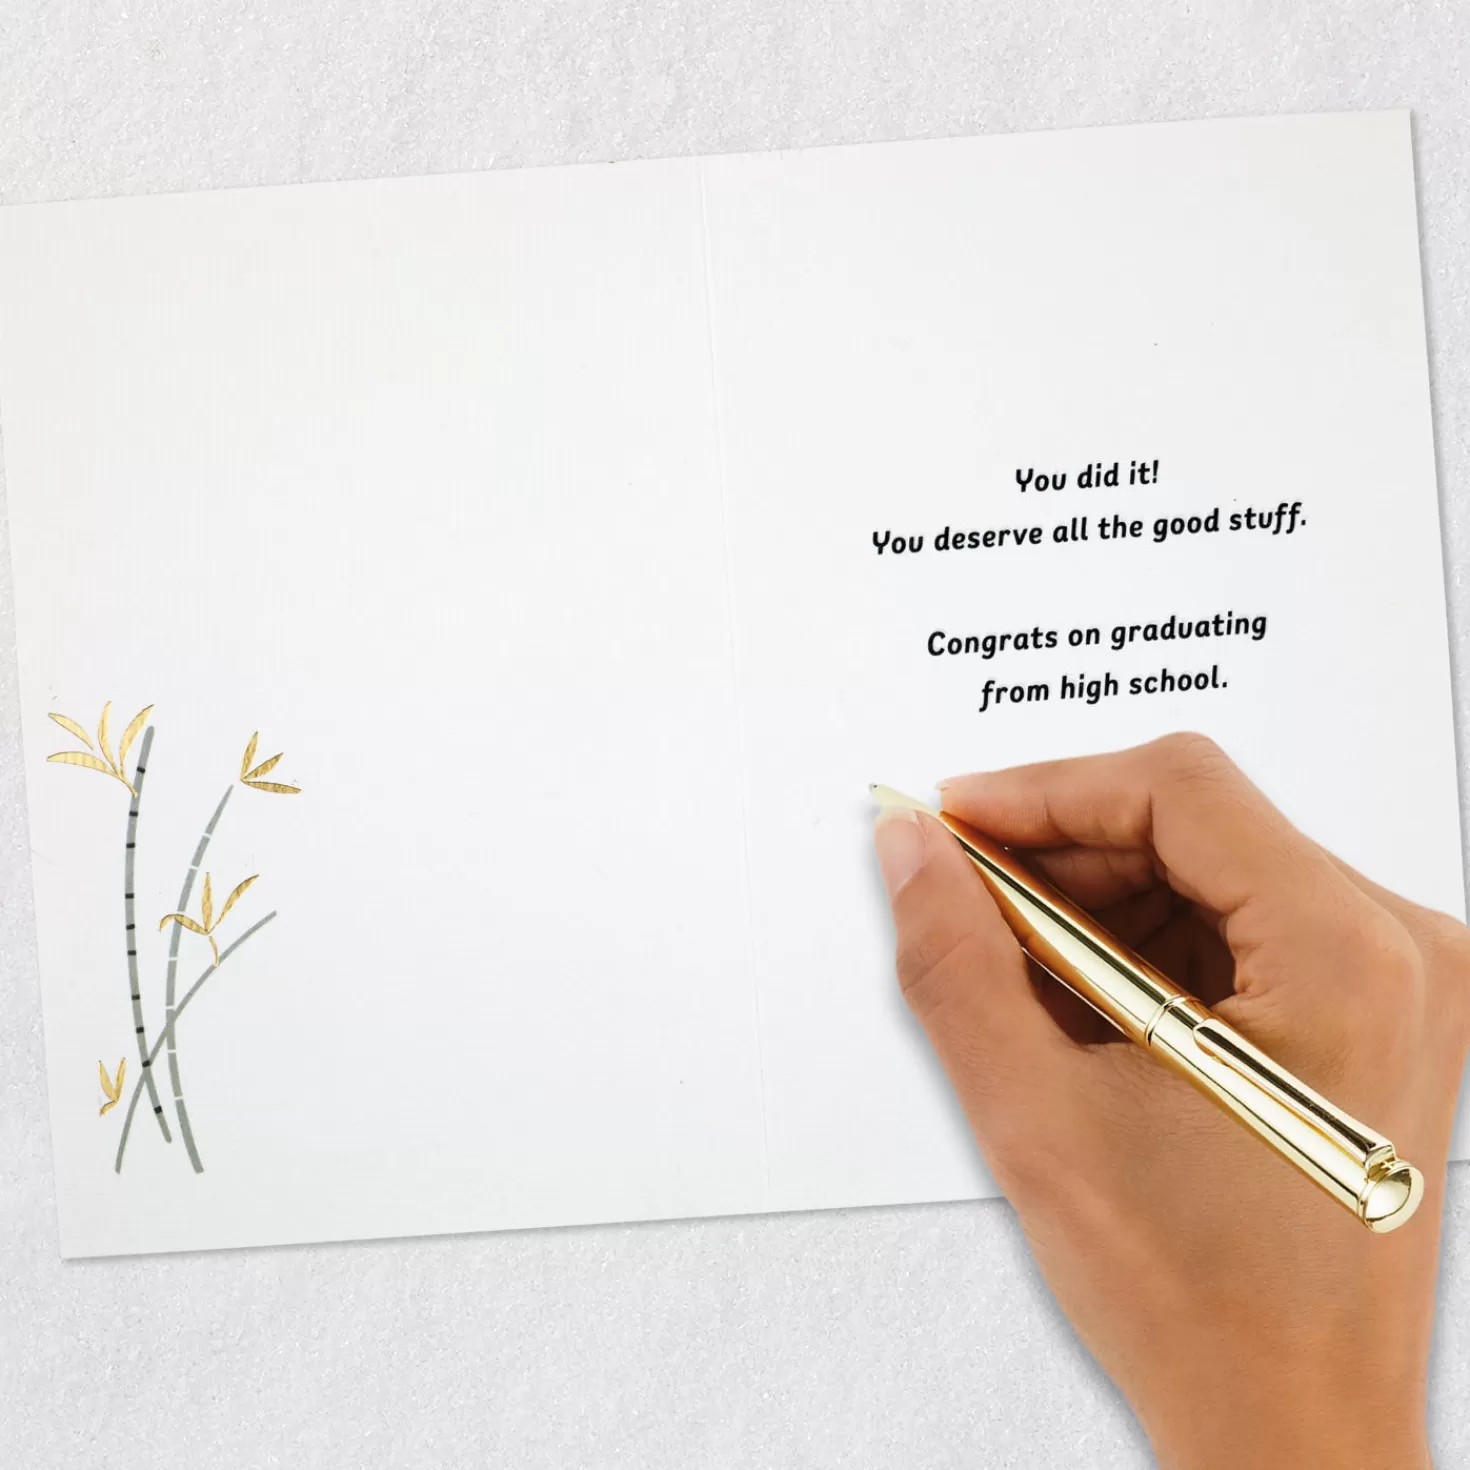 You did it!
You deserve all the good stuff.
Congrats on graduating
from high school.